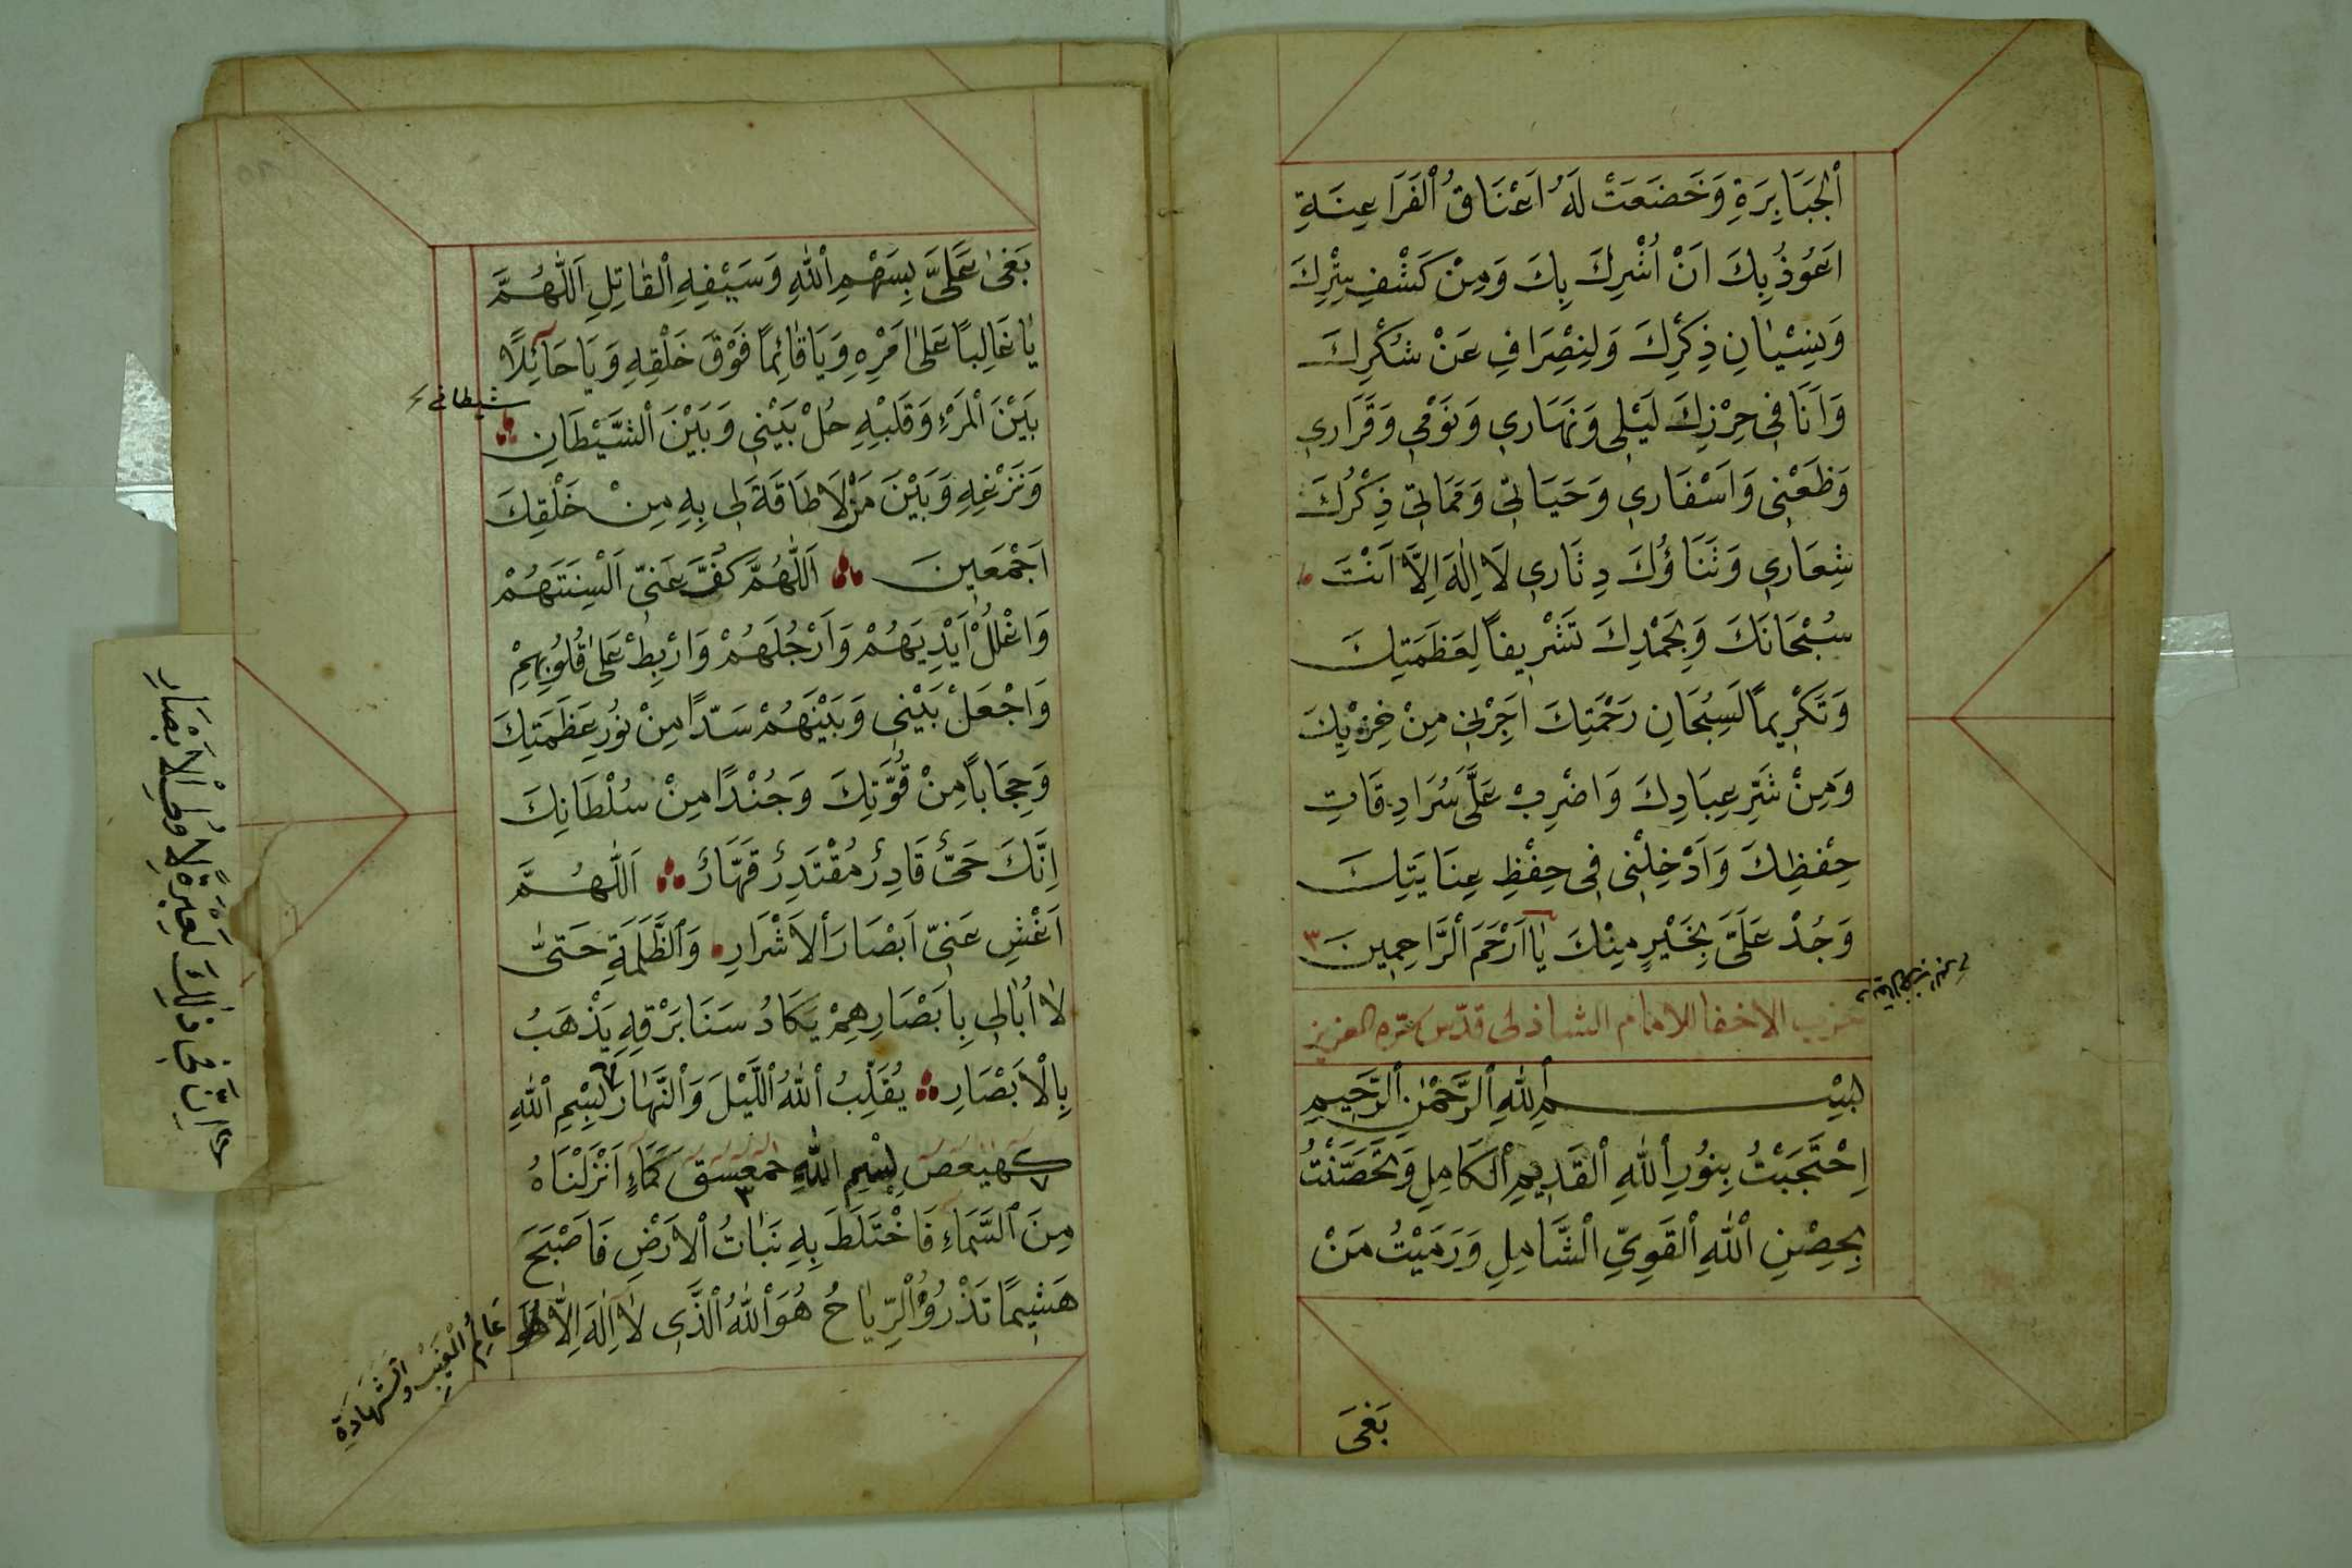 اَلْجَبَابِرَةِ وَخَضَعَتْ لَهُ اَعْنَاقُ الْفَرَاعِنَةِ
اَعُوذُ بِكَ اَنْ اُشْرِكَ بِكَ وَمِنْ كَشْفِ سِتْرِكَ
وَنِسْيَانِ ذِكْرِكَ وَلِنْصِرَافِ عَنْ شُكْرِكَ
وَاَنَا فِى حِرْزِكَ لَيْلِى وَنَهَارِي وَنَوْمِي وَقَرَارِي
وَظَعْنِى وَاَسْفَارِي وَحَيَاتِىّ وَمَمَاتِىّ ذِكْرُكَ
شِعَارِي وَثَنَاؤُكَ دِثَارِي لَا اِلٰهَ اِلَّا اَنْتَ
سُبْحَانَكَ وَبِحَمْدِكَ تَشْرِيفًا لِعَظَمَتِكَ
وَتَكْرِيمًا لَسِبُحَانِ رَحْمَتِكَ اَجِرْنِى مِنْ خِزْيِكَ
وَمِنْ شَرِّ عِبَادِكَ وَاضْرِبْ عَلَىَّ سُرَادِقَاتِ
حِفْظِكَ وَاَدْخِلْنِى فِى حِفْظِ عِنَايَتِكَ
وَجُدْ عَلَىَّ بِخَيْرٍ مِنْكَ يَا اَرْحَمَ الرَّاحِمِينَ ٣
حزب الاخفا للامام الشاذلى قدّس سره العزيز
بِسْمِ اللهِ الرَّحْمٰنِ الرَّحِيمِ
اِحْتَجَبْتُ بِنُورِ اللهِ الْقَدِيمِ الْكَامِلِ وَتَحَصَّنْتُ
بِحِصْنِ اللهِ الْقَوِيِّ الشَّامِلِ وَرَمَيْتُ مَنْ
بَغٰى
بَغٰى عَلَىَّ بِسَهْمِ اللهِ وَسَيْفِهِ الْقَاتِلِ اَللّٰهُمَّ
يَا غَالِبًا عَلىٰ اَمْرِهِ وَيَا قَائِمًا فَوْقَ خَلْقِهِ وَيَا حَآئِلًا
شيطانى
بَيْنَ الْمَرْءِ وَقَلْبِهِ حُلْ بَيْنِي وَبَيْنَ الشَّيْطَانِ
وَنَزْغِهِ وَبَيْنَ مَنْ لَا طَاقَةَ لِى بِهِ مِنْ خَلْقِكَ
اَجْمَعِينَ اَللّٰهُمَّ كُفَّ عَنِّى اَلْسِنَتَهُمْ
وَاغْلُلْ اَيْدِيَهُمْ وَاَرْجُلَهُمْ وَارْبِطْ عَلىٰ قُلُوبِهِمْ
وَاجْعَلْ بَيْنِي وَبَيْنَهُمْ سَدًّا مِنْ نُورِ عَظَمَتِكَ
وَحِجَابًا مِنْ قُوَّتِكَ وَجُنْدًا مِنْ سُلْطَانِكَ
اِنَّكَ حَىٌّ قَادِرٌ مُقْتَدِرٌ قَهَّارٌ اَللّٰهُمَّ
اَغْشِ عَنِّى اَبْصَارَ الْاَشْرَارِ وَالظَّلَمَةِ حَتّىٰ
لَا اُبَالِى بِاَبْصَارِهِمْ يَكَادُ سَنَا بَرْقِهِ يَذْهَبُ
بِالْاَبْصَارِ يُقَلِّبُ اللهُ الَّيْلَ وَالنَّهَارَ بِسْمِ اللهِ
كهيعص بِسْمِ اللهِ حمعسق كَمَاءٍ اَنْزَلْنَاهُ
مِنَ السَّمَاءِ فَاخْتَلَطَ بِهِ نَبَاتُ الْاَرْضِ فَاَصْبَحَ
هَشِيمًا تَذْرُوُهُ الرِّيَاحُ هُوَ اللهُ الَّذِى لَا اِلٰهَ اِلَّا هُوَ
عَالِمُ الْغَيْبِ وَالشَّهَادَةِ
اِنَّ فِى ذٰلِكَ لَعِبْرَةً لِاُولِى الْاَبْصَارِ